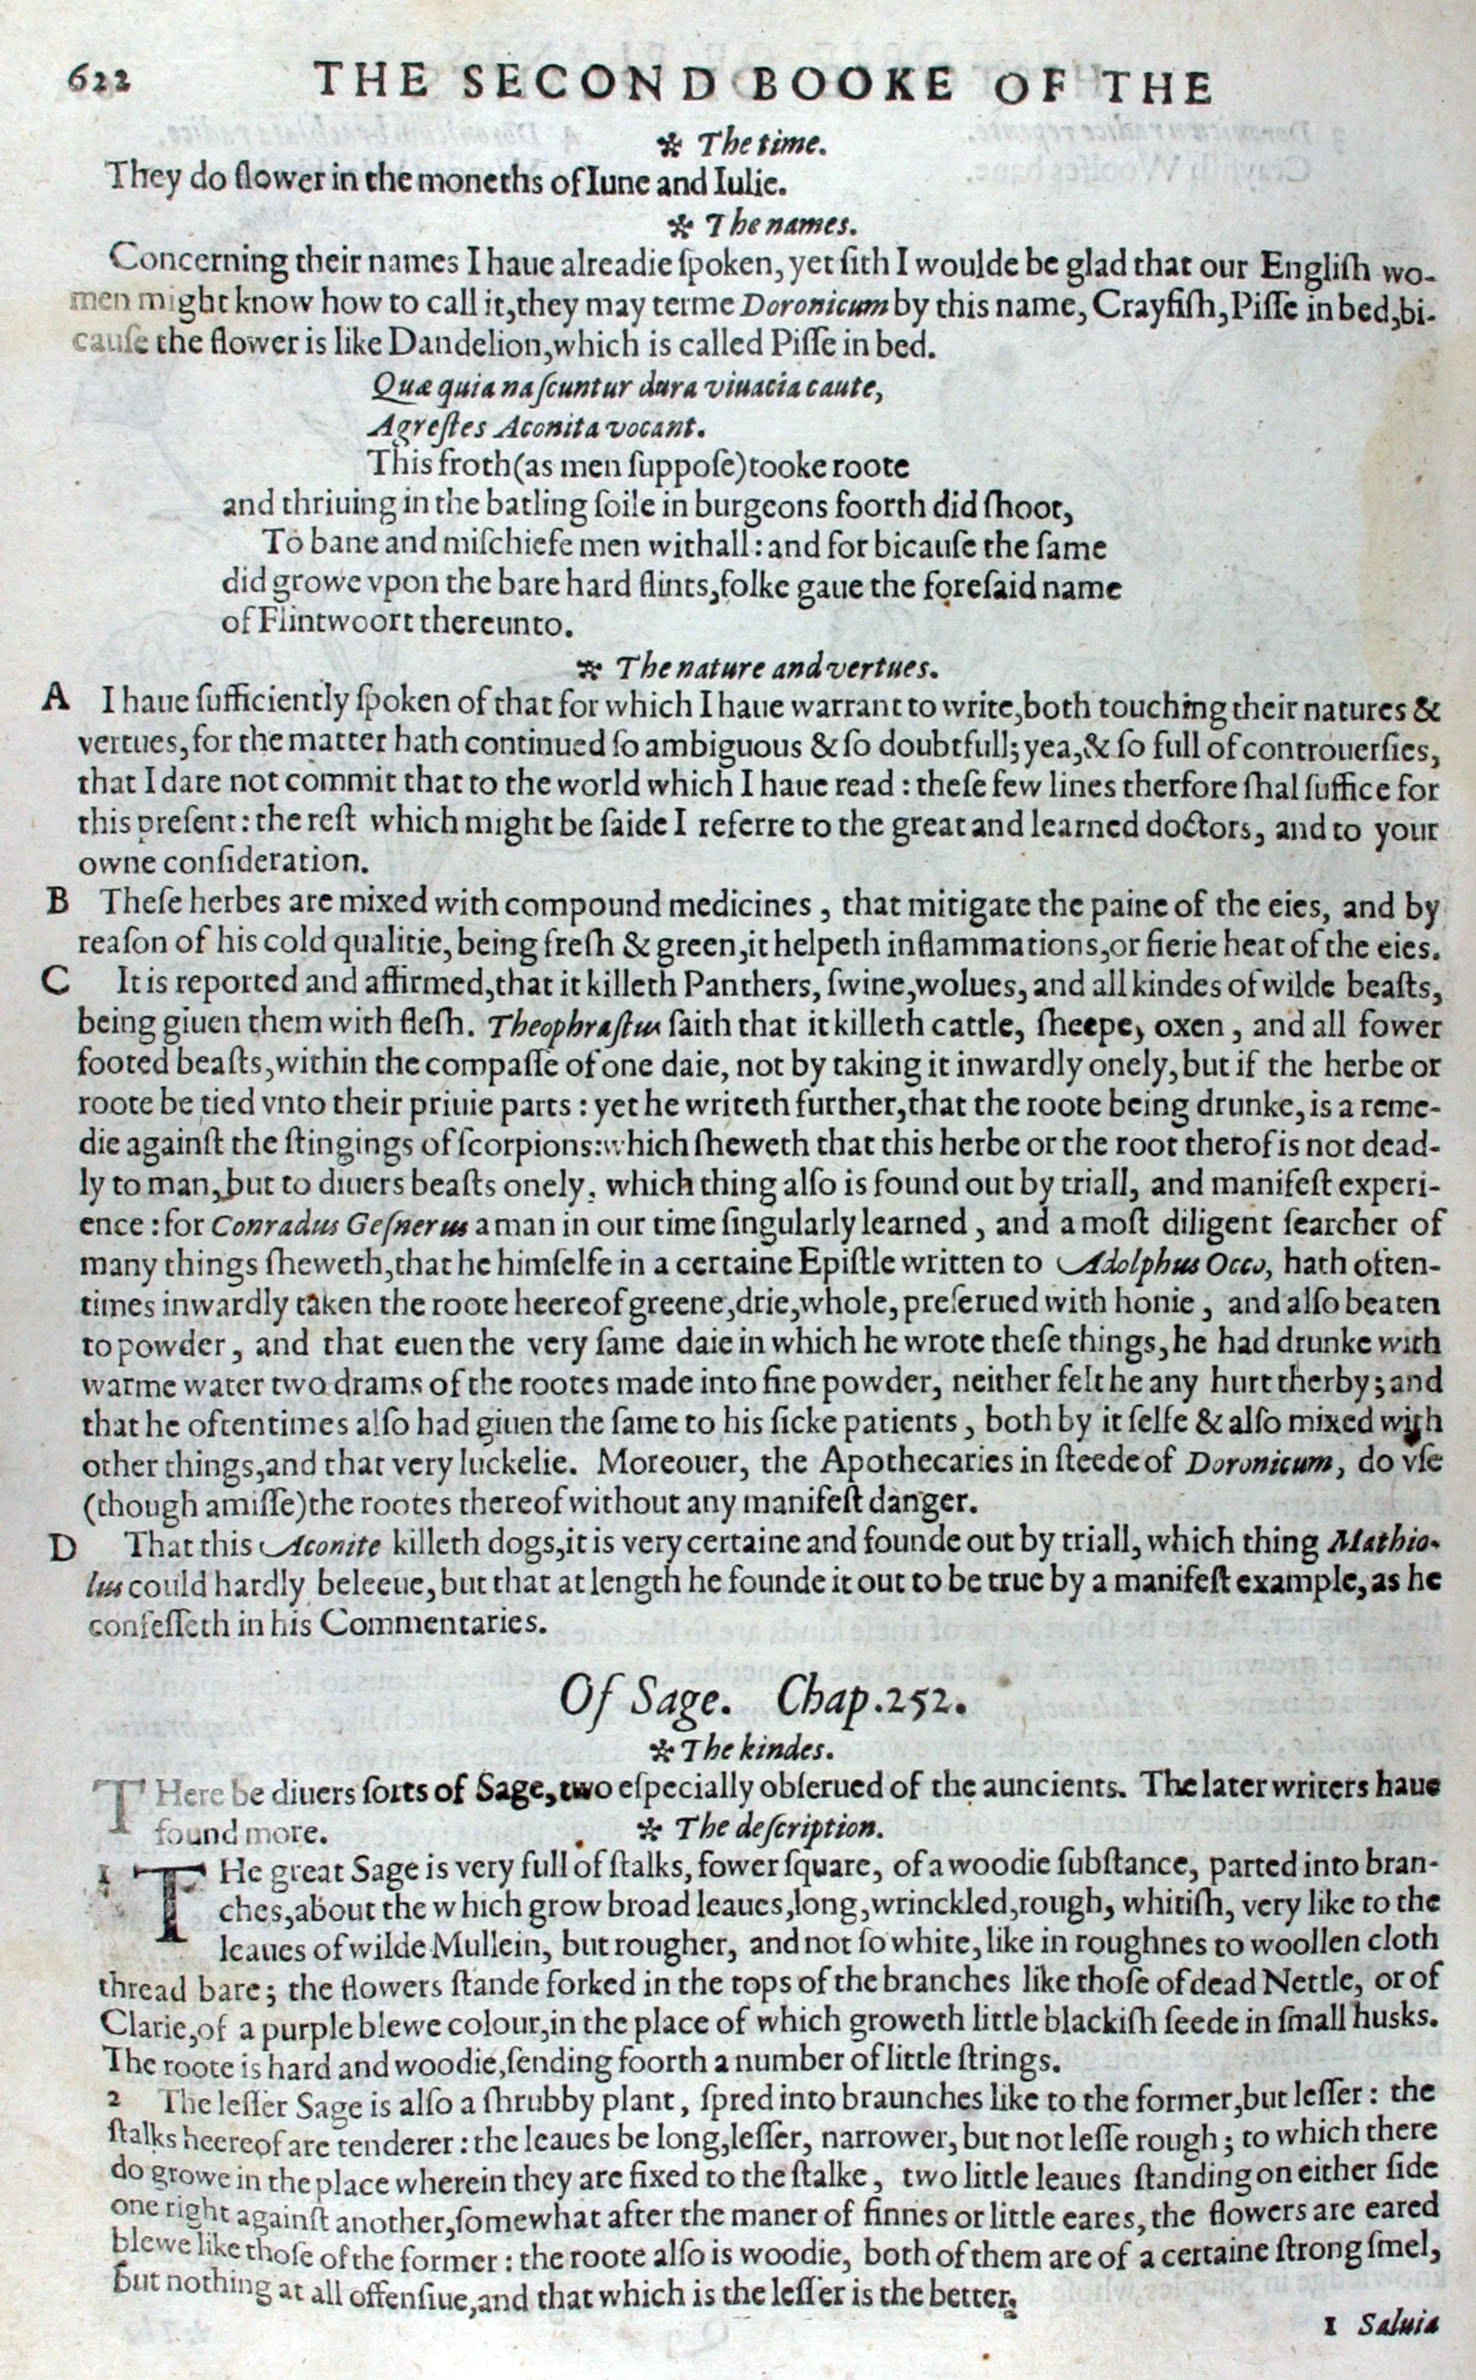 622 THE SECOND BOOKE OF THE
✼ The time.
They do flower in the moneths of Iune and Iulie.
✼ The names.
Concerning their names I haue alreadie ſpoken, yet ſith I woulde be glad that our Engliſh wo-
men might know how to call it, they may terme Doronicum by this name, Crayfiſh, Piſſe in bed, bi-
cauſe the flower is like Dandelion, which is called Piſſe in bed.
Quæ quia naſcuntur dura viuacia caute,
Agreſtes Aconita vocant.
This froth (as men ſuppoſe) tooke roote
and thriuing in the batling ſoile in burgeons foorth did ſhoot,
To bane and miſchiefe men withall: and for bicauſe the ſame
did growe vpon the bare hard flints, folke gaue the foreſaid name
of Flintwoort thereunto.
✼ The nature and vertues.
A I haue ſufficiently ſpoken of that for which I haue warrant to write, both touching their natures &
vertues, for the matter hath continued ſo ambiguous & ſo doubtfull; yea, & ſo full of controuerſies,
that I dare not commit that to the world which I haue read: theſe few lines therfore ſhal ſuffice for
this preſent: the reſt which might be ſaide I referre to the great and learned doctors, and to your
owne conſideration.
B Theſe herbes are mixed with compound medicines, that mitigate the paine of the eies, and by
reaſon of his cold qualitie, being freſh & green, it helpeth inflammations, or fierie heat of the eies.
C It is reported and affirmed, that it killeth Panthers, ſwine, wolues, and all kindes of wilde beaſts,
being giuen them with fleſh. Theophraſtus ſaith that it killeth cattle, ſheepe, oxen, and all fower
footed beaſts, within the compaſſe of one daie, not by taking it inwardly onely, but if the herbe or
roote be tied vnto their priuie parts: yet he writeth further, that the roote being drunke, is a reme-
die againſt the ſtingings of ſcorpions: which ſheweth that this herbe or the root therof is not dead-
ly to man, but to diuers beaſts onely. which thing alſo is found out by triall, and manifeſt experi-
ence: for Conradus Geſnerus a man in our time ſingularly learned, and a moſt diligent ſearcher of
many things ſheweth, that he himſelfe in a certaine Epiſtle written to Adolphus Occo, hath often-
times inwardly taken the roote heereof greene, drie, whole, preſerued with honie, and alſo beaten
to powder, and that euen the very ſame daie in which he wrote theſe things, he had drunke with
warme water two drams of the rootes made into fine powder, neither felt he any hurt therby; and
that he oftentimes alſo had giuen the ſame to his ſicke patients, both by it ſelfe & alſo mixed with
other things, and that very luckelie. Moreouer, the Apothecaries in ſteede of Doronicum, do vſe
(though amiſſe) the rootes thereof without any manifeſt danger.
D That this Aconite killeth dogs, it is very certaine and founde out by triall, which thing Mathio-
lus could hardly beleeue, but that at length he founde it out to be true by a manifeſt example, as he
confeſſeth in his Commentaries.
Of Sage. Chap. 252.
✼ The kindes.
THere be diuers ſorts of Sage, two eſpecially obſerued of the auncients. The later writers haue
found more.
✼ The deſcription.
1 THe great Sage is very full of ſtalks, fower ſquare, of a woodie ſubſtance, parted into bran-
ches, about the which grow broad leaues, long, wrinckled, rough, whitiſh, very like to the
leaues of wilde Mullein, but rougher, and not ſo white, like in roughnes to woollen cloth
thread bare; the flowers ſtande forked in the tops of the branches like thoſe of dead Nettle, or of
Clarie, of a purple blewe colour, in the place of which groweth little blackiſh ſeede in ſmall husks.
The roote is hard and woodie, ſending foorth a number of little ſtrings.
2 The leſſer Sage is alſo a ſhrubby plant, ſpred into braunches like to the former, but leſſer: the
ſtalks heereof are tenderer: the leaues be long, leſſer, narrower, but not leſſe rough; to which there
do growe in the place wherein they are fixed to the ſtalke, two little leaues ſtanding on either ſide
one right againſt another, ſomewhat after the maner of finnes or little eares, the flowers are eared
blewe like thoſe of the former: the roote alſo is woodie, both of them are of a certaine ſtrong ſmel,
but nothing at all offenſiue, and that which is the leſſer is the better.
1 Saluia